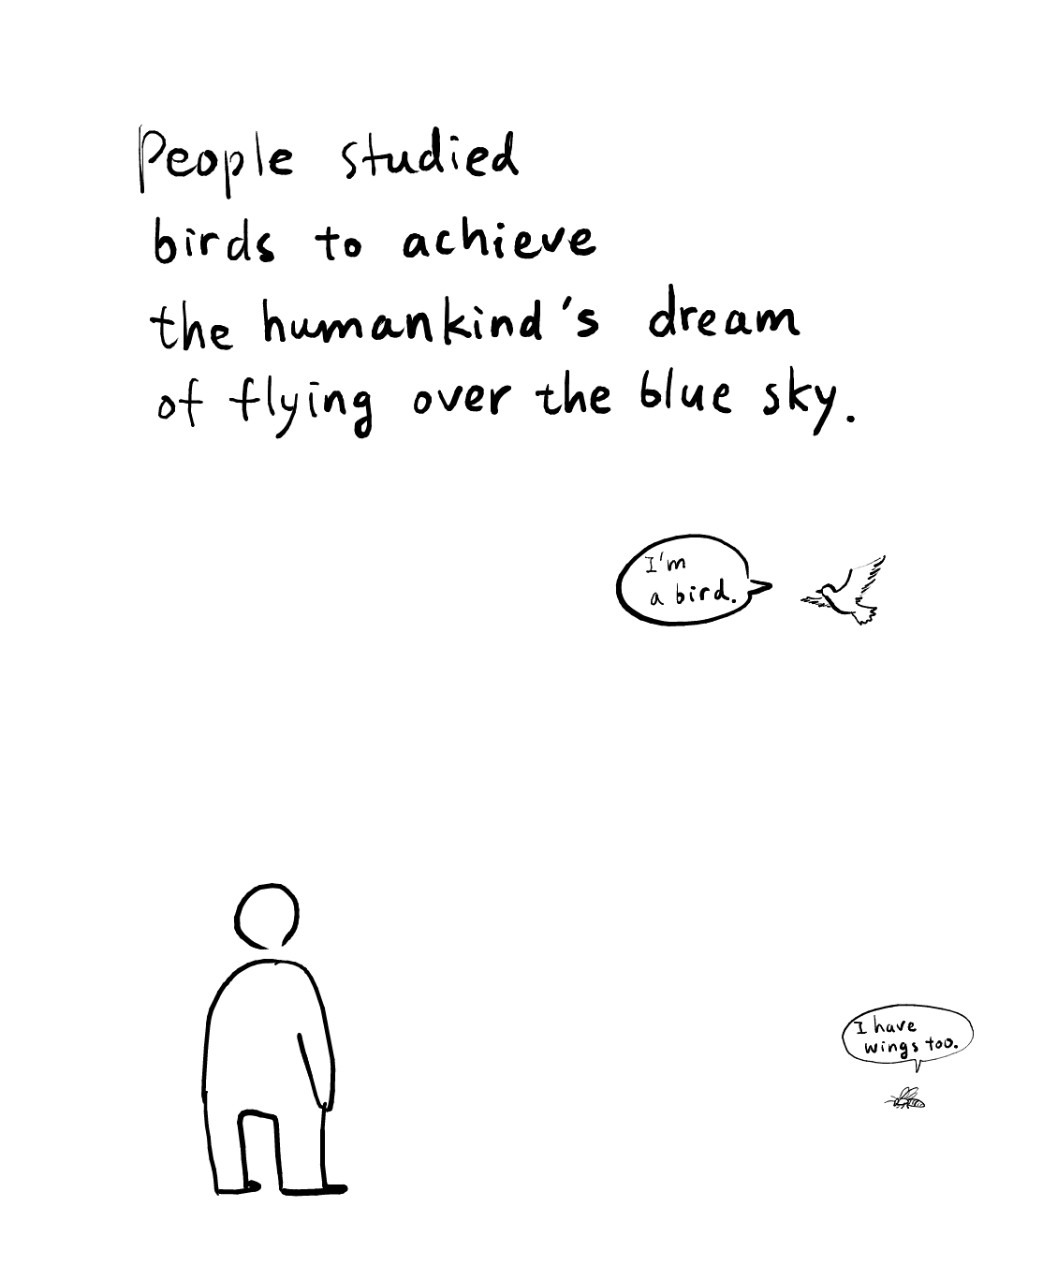 People studied
birds to achieve
the humankind's dream
of flying over the blue sky.
I'm
a bird.
I have
wings too.